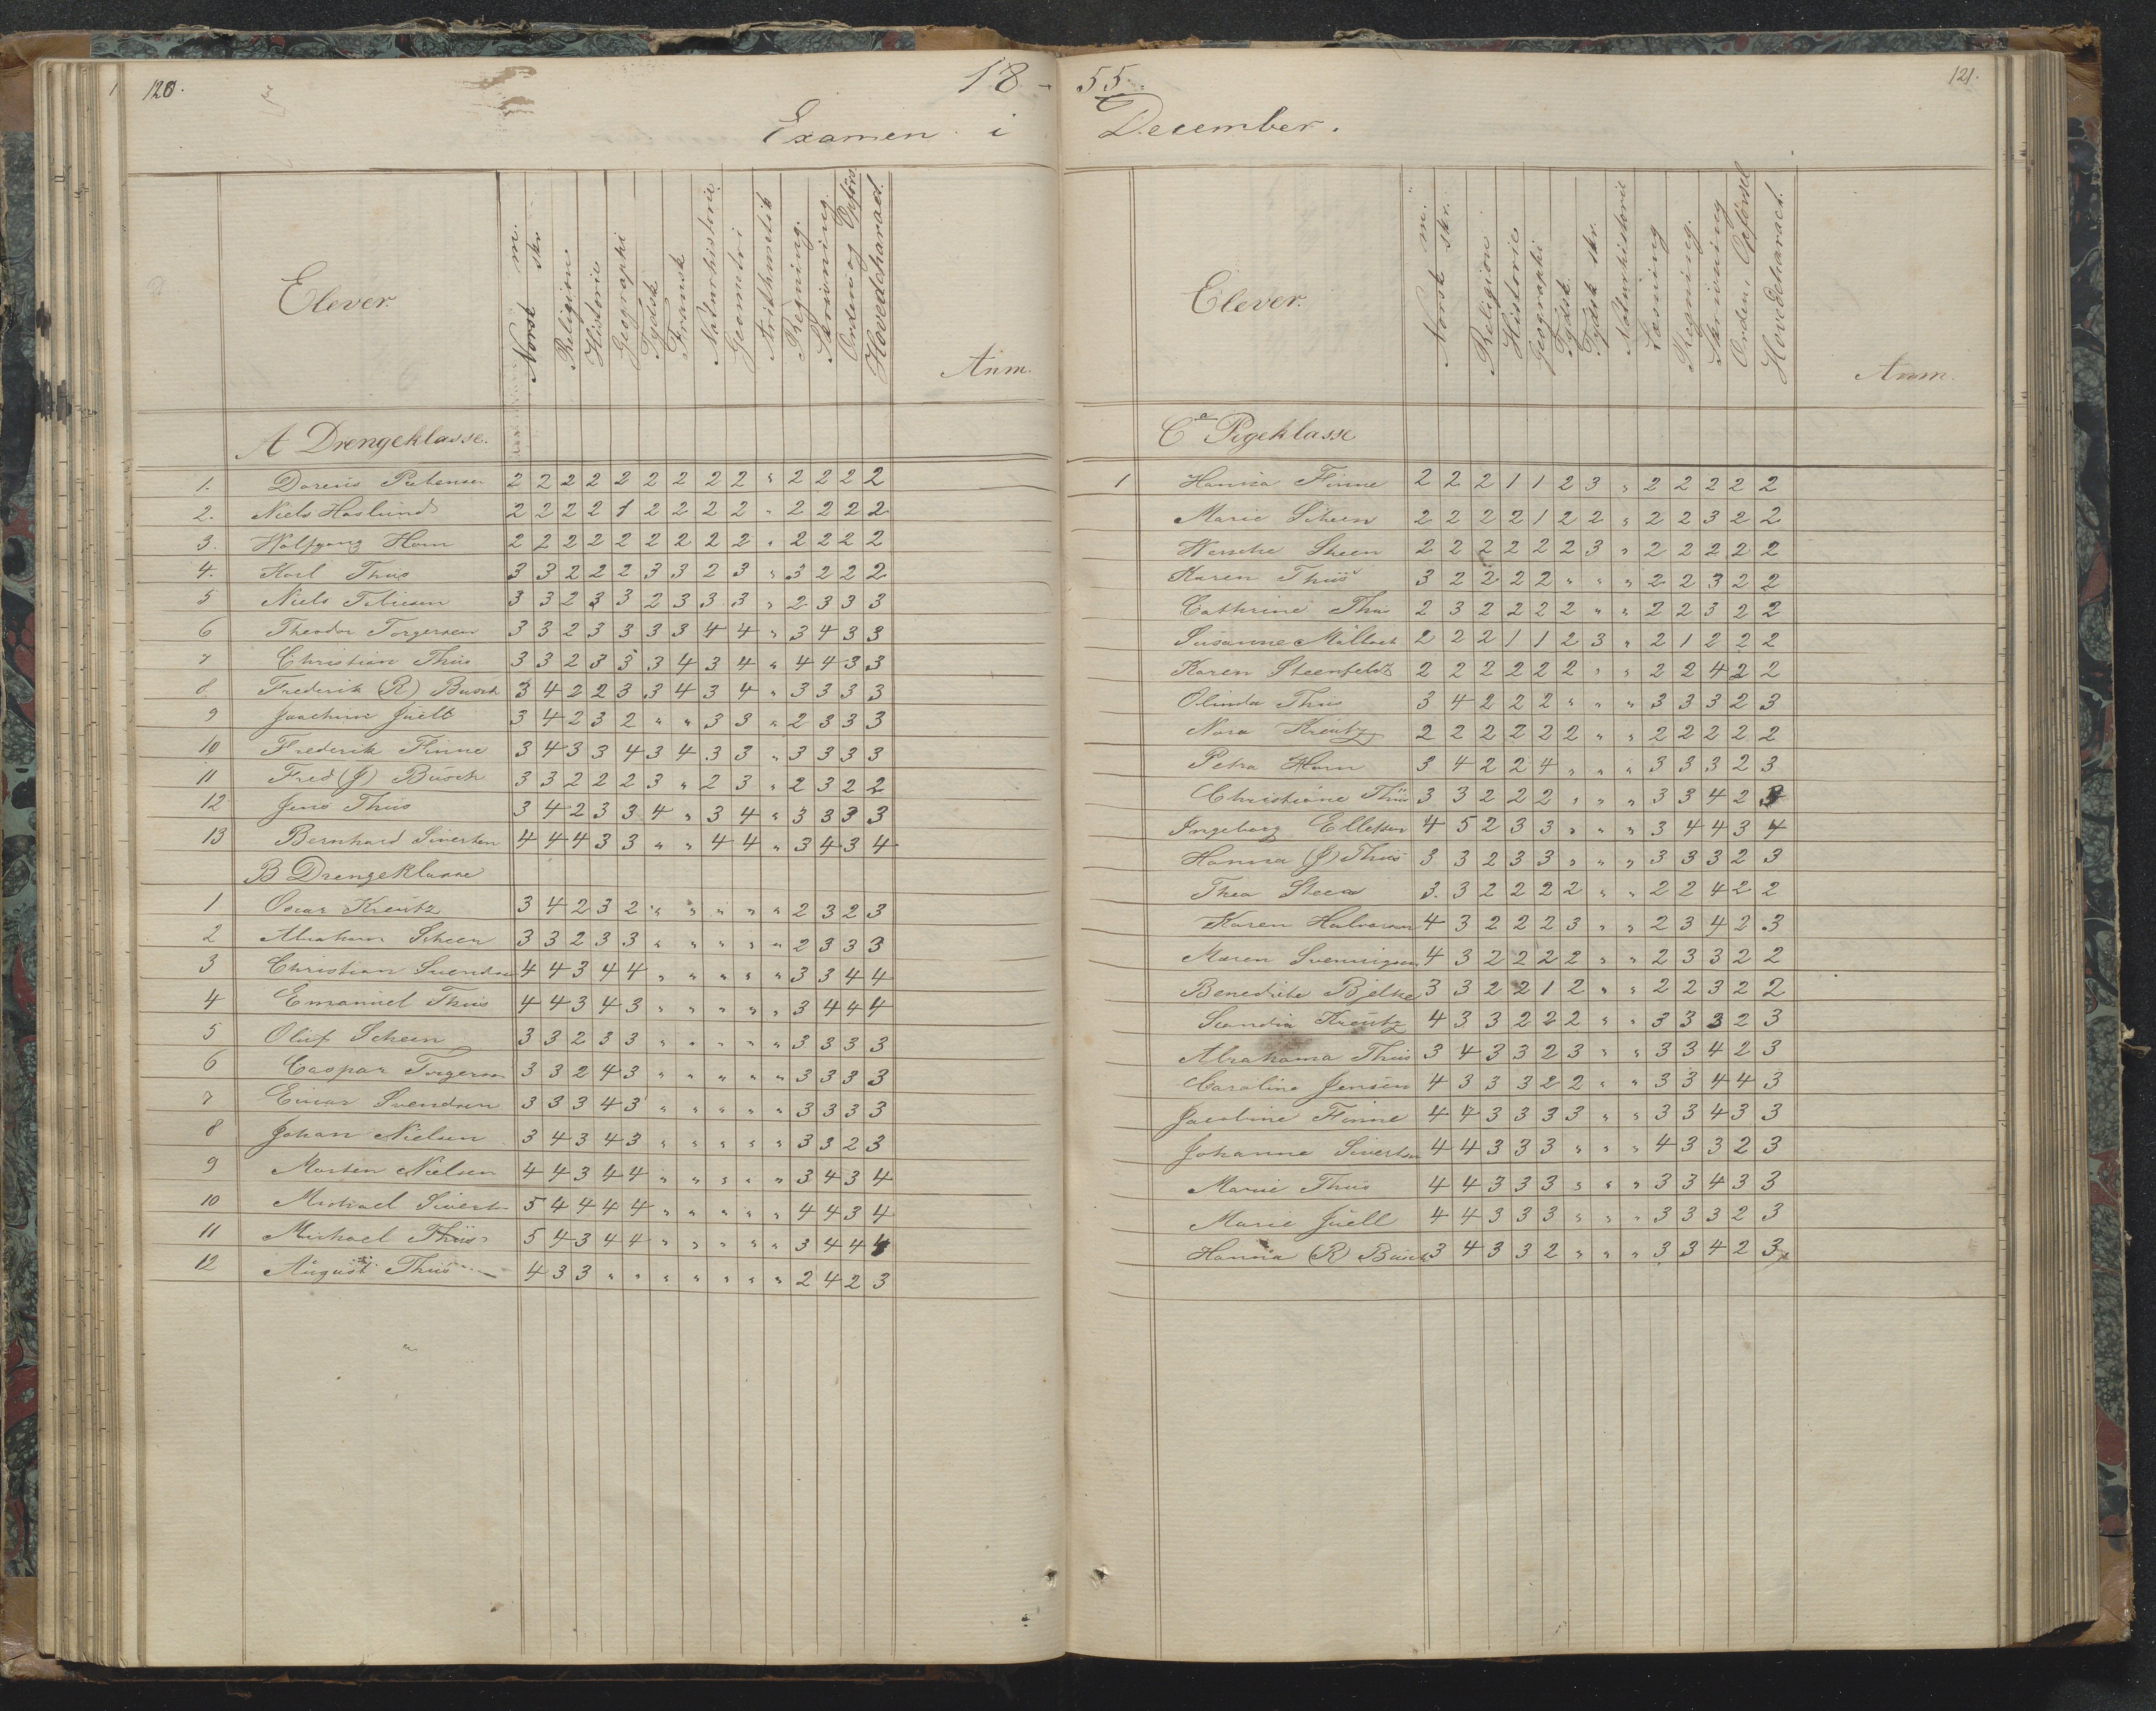 120.
18
Examen i
Elever.
Norsk m.
skr.
Religion
Historie
Geographi
Tydsk
Fransk
Naturhistorie
Geometri
Arithmetik
Regning.
Skrivning.
Orden og Opførs.
Hovedcharact.
Anm.
A Drengeklasse.
1. Petersen 2 2 2 2 2 2 2 2 2 " 2 2 2 2
2. Niels Haslund 2 2 2 2 1 2 2 2 2 " 2 2 2 2
3. Wolfgang Horn 2 2 2 2 2 2 2 2 2 " 2 2 2 2
4. Karl Thiis 3 3 2 2 2 3 3 2 3 " 3 2 2 2
5 Niels 3 3 2 3 3 2 3 3 3 " 2 3 3 3
6 Theodor Torgersen 3 3 2 3 3 3 3 4 4 " 3 4 3 3
7 Christian Thiis 3 3 2 3 3 3 4 3 4 " 4 4 3 3
8. Frederik (R) Busch 3 4 2 2 3 3 4 3 4 " 3 3 3 3
9 Joachim Juell 3 4 2 3 2 " " 3 3 " 2 3 3 3
10 Frederik Finne 3 4 3 3 4 3 4 3 3 " 3 3 3 3
11 Fred (J) Busch 3 3 2 2 2 3 " 2 3 " 2 3 2 2
12 Jens Thiis 3 4 2 3 3 4 " 3 4 " 3 3 3 3
13 Bernhard Siversten 4 4 4 3 3 " " 4 4 " 3 4 3 4
B Drengeklasse
1 Oscar Kreutz 3 4 2 3 2 " " " " " 2 3 2 3
2 Abraham Scheen 3 3 2 3 3 " " " " " 2 3 3 3
3 Christian Svendsen 4 4 3 4 4 " " " " " 3 3 4 4
4 Emanuel Thiis 4 4 3 4 3 " " " " " 3 4 4 4
5 Oluf Scheen 3 3 2 3 3 " " " " " 3 3 3 3
6 Caspar Torgersen 3 3 2 4 3 " " " " " 3 3 3 3
7 Einar Svendsen 3 3 3 4 3 " " " " " 3 3 3 3
8 Johan Nielsen 3 4 3 4 3 " " " " " 3 3 2 3
9 Morten Nielsen 4 4 3 4 4 " " " " " 3 4 3 4
10 Michael Siverts 5 4 4 4 4 " " " " " 4 4 3 4
11 Michael Thiis 5 4 3 4 4 " " " " " 3 4 4 4
12 August Thiis 4 3 3 " " " " " " " 2 4 2 3
55.
121.
December.
Elever.
Norsk m.
skr.
Religion
Historie
Geographi
Tydsk.
Tydsk skr.
Naturhistorie
Læsning
Regning.
Skrivning
Orden, Opførsel
Hovedcharact.
Anm.
C Pigeklasse
1 Hanna Finne 2 2 2 1 1 2 3 " 2 2 2 2 2
Marie Scheen 2 2 2 2 1 2 2 " 2 2 3 2 2
Scheen 2 2 2 2 2 2 3 " 2 2 2 2 2
Karen Thiis 3 2 2 2 2 " " " 2 2 3 2 2
Cathrine Thiis 2 3 2 2 2 2 " " 2 2 3 2 2
Susanne Møllbach 2 2 2 1 1 2 3 " 2 1 2 2 2
Karen Steenfeldt 2 2 2 2 2 2 " " 2 2 4 2 2
Olinda Thiis 3 4 2 2 2 " " " 3 3 3 2 3
Nora Kreutz 2 2 2 2 2 2 " " 2 2 2 2 2
Petra Horn 3 4 2 2 4 " " " 3 3 3 2 3
Christiane Thiis 3 3 2 2 2 " " " 3 3 4 2 3
Ingeborg Ellefsen 4 5 2 3 3 " " " 3 4 4 3 4
Hanna (J) Thiis 3 3 2 3 3 " " " 3 3 3 2 3
Thea Steen 3. 3 2 2 2 2 " " 2 2 4 2 2
Karen Halvorsen 4 3 2 2 2 3 " " 2 3 4 2 3
Maren Svenningsen 4 3 2 2 2 2 " " 2 3 3 2 2
Benedicte Bjelke 3 3 2 2 1 2 " " 2 2 3 2 2
Scandia Kreutz 4 3 3 2 2 2 " " 3 3 3 2 3
Abrahama Thiis 3 4 3 3 2 3 " " 3 3 4 2 3
Caroline Jensen 4 3 3 3 2 2 " " 3 3 4 4 3
Jacobine Finne 4 4 3 3 3 3 " " 3 3 4 3 3
Johanne Siversten 4 4 3 3 3 " " " 4 3 3 2 3
Marie Thiis 4 4 3 3 3 " " " 3 3 4 3 3
Marie Juell 4 4 3 3 3 " " " 3 3 3 2 3
Hanna (R) Busch 3 4 3 3 2 " " " 3 3 4 2 3